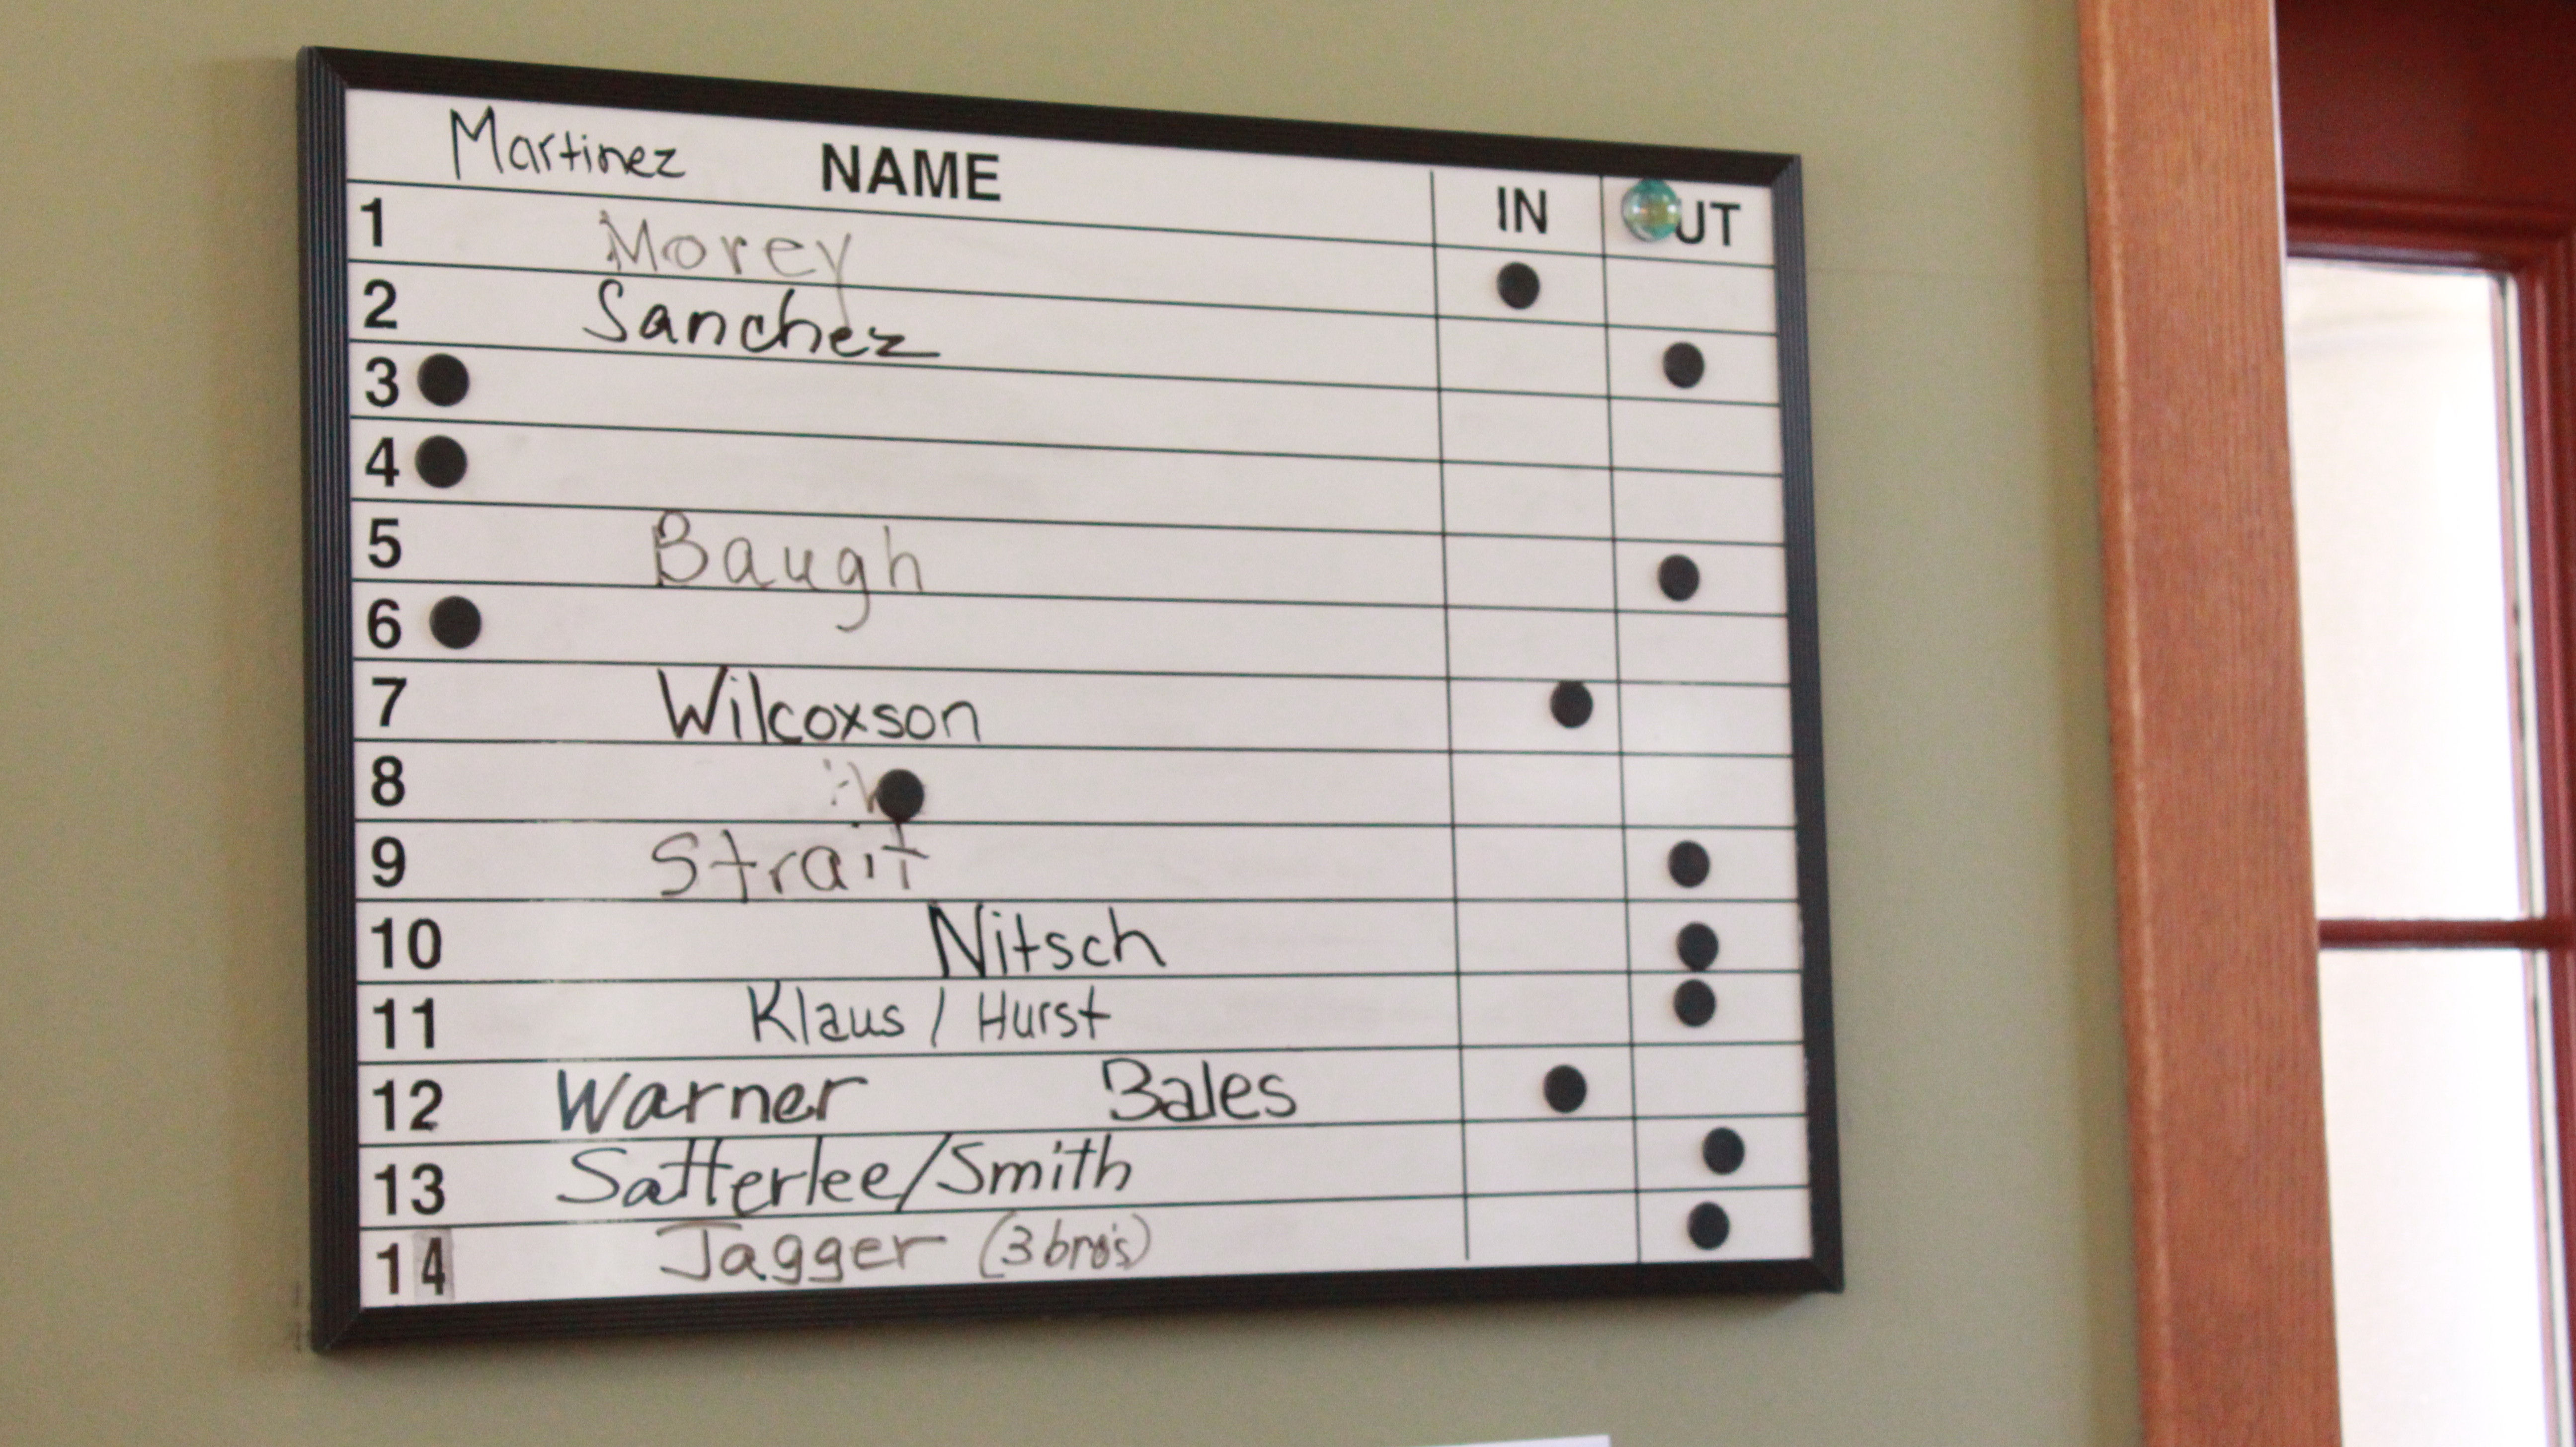 Martinez NAME IN UT
1 Morey
2 Sanchez
3
4
5 Baugh
6
7 Wilcoxson
8
9 Strait
10 Nitsch
11 Klaus / Hurst
12 Warner Bales
13 Satterlee/Smith
14 Jagger (3 bro's)